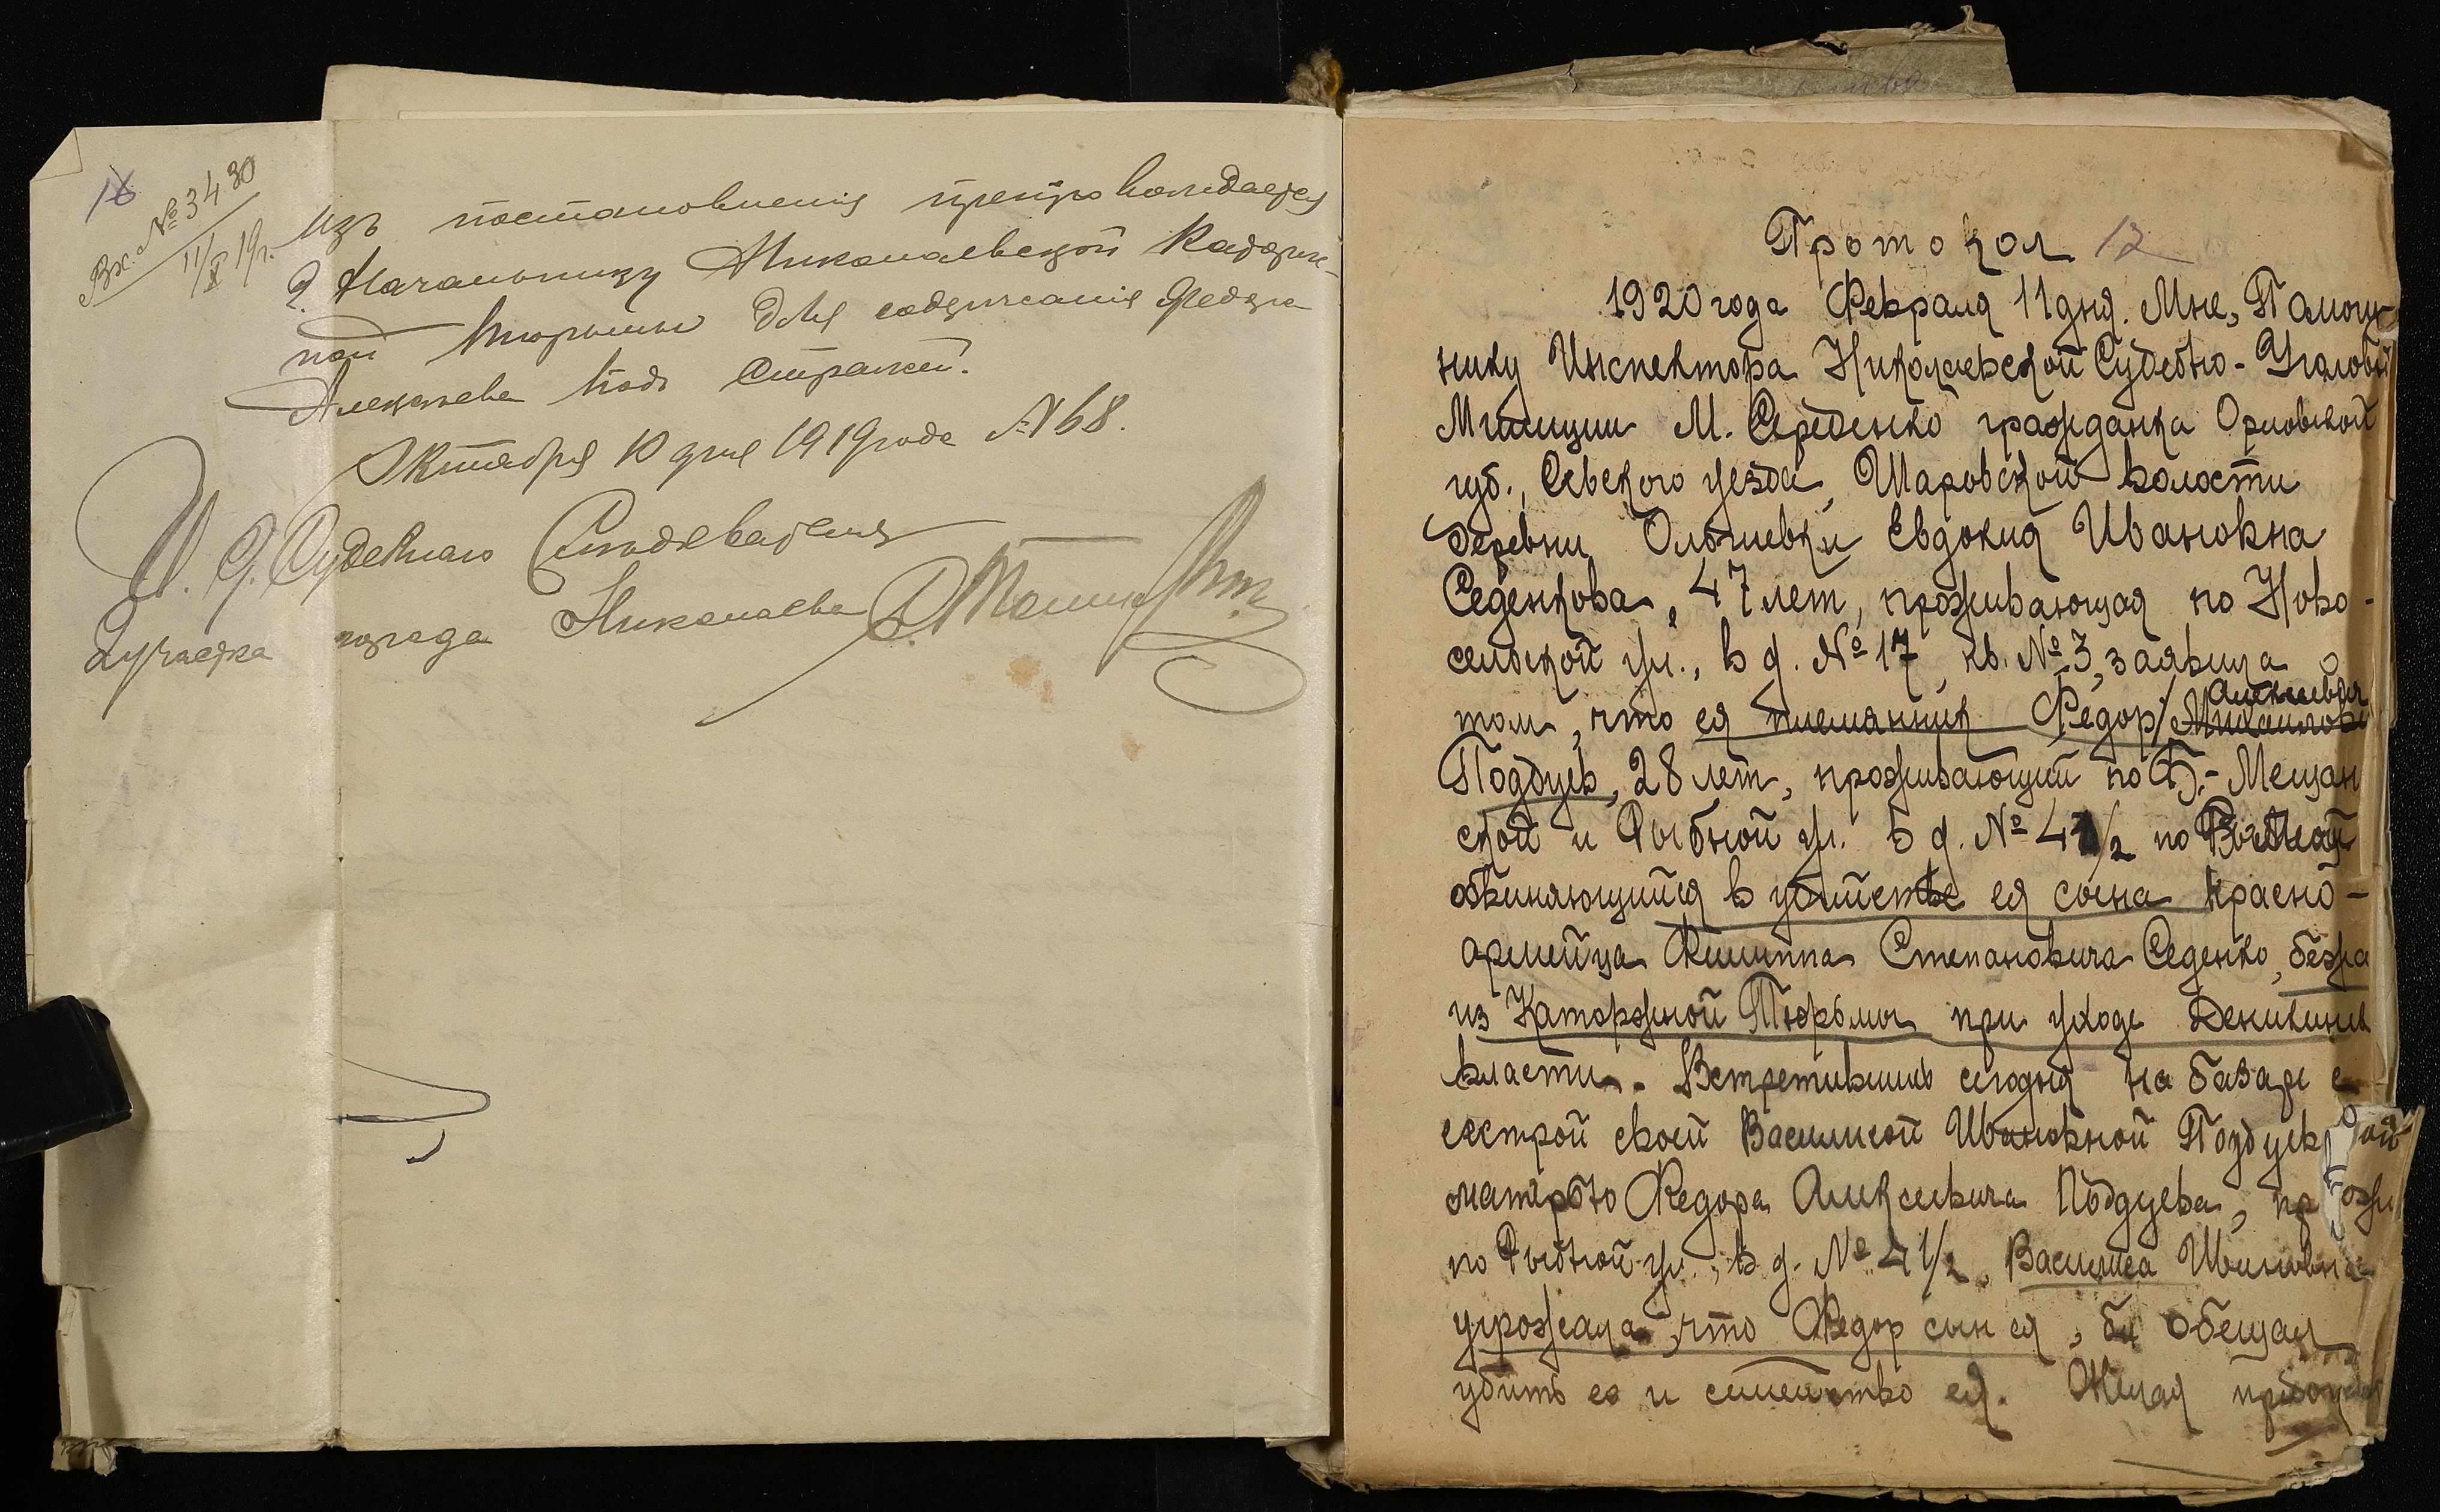 16
Вх. № 3430
11/X 19 г.
изъ постановленія препровождается
г. Начальнику Николаевской Каторж-
ной тюрьмы для содержанія Федора
Алексѣева подъ стражей.
Октября 10 дня 1919 года № 68.
И. д. Судебнаго Слѣдователя
2 участка города Николаева
Протокол 12
1920 года Февраля 11 дня. Мне, Помощ-
нику Инспектора Николаевской Судебно-Уголовной
Милиции М. Середенко гражданка Орловской
губ., Севского уезда, Шаровской волости
деревни Ольгиевки Евдокия Ивановна
Седенкова, 47 лет, проживающая по Ново-
сельской ул., в д. № 17, кв. № 3, заявила о
том, что ея племянник Федор Алексеевич Михайлов
Поддуев, 28 лет, проживающий по Б.-Мещан
ской и Рыбной ул. в д. № 41/2 по Рыбной
обвиняющийся в убийстве ея сына красно-
армейца Филиппа Степановича Седенко, бежа
из Каторжной Тюрьмы при уходе Деникинс
власти. Встретившись сегодня на базаре с
сестрой своей Василисой Ивановной Поддуевой
матерью Федора Алексеевича Поддуева, прожи
по Рыбной ул., в д. № 41/2, Василиса Ивановна
угрожала, что Федор сын ея, бы обещал
убить ее и семейство ея. Желая